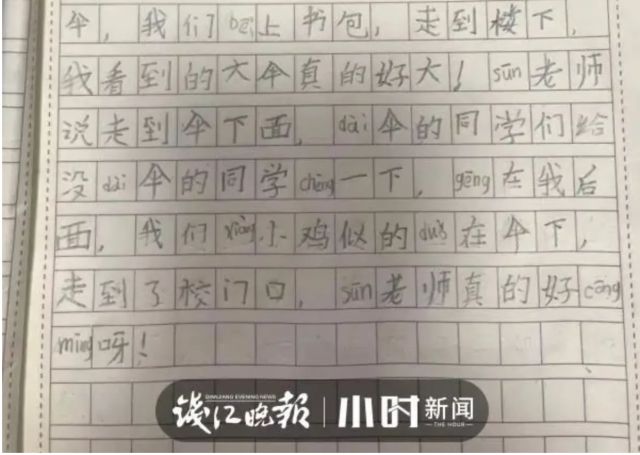 伞，我们bēi上书包，走到楼下，
我看到的大伞真的好大！sūn老师
说走到伞下面，dài伞的同学们给
没dài伞的同学chēng一下，gēng在我后
面，我们xiàng小鸡似的duǒ在伞下，
走到了校门口，sūn老师真的好cōng
míng呀！
钱江晚报 小时新闻
QIANJIANG EVENING NEWS THE HOUR